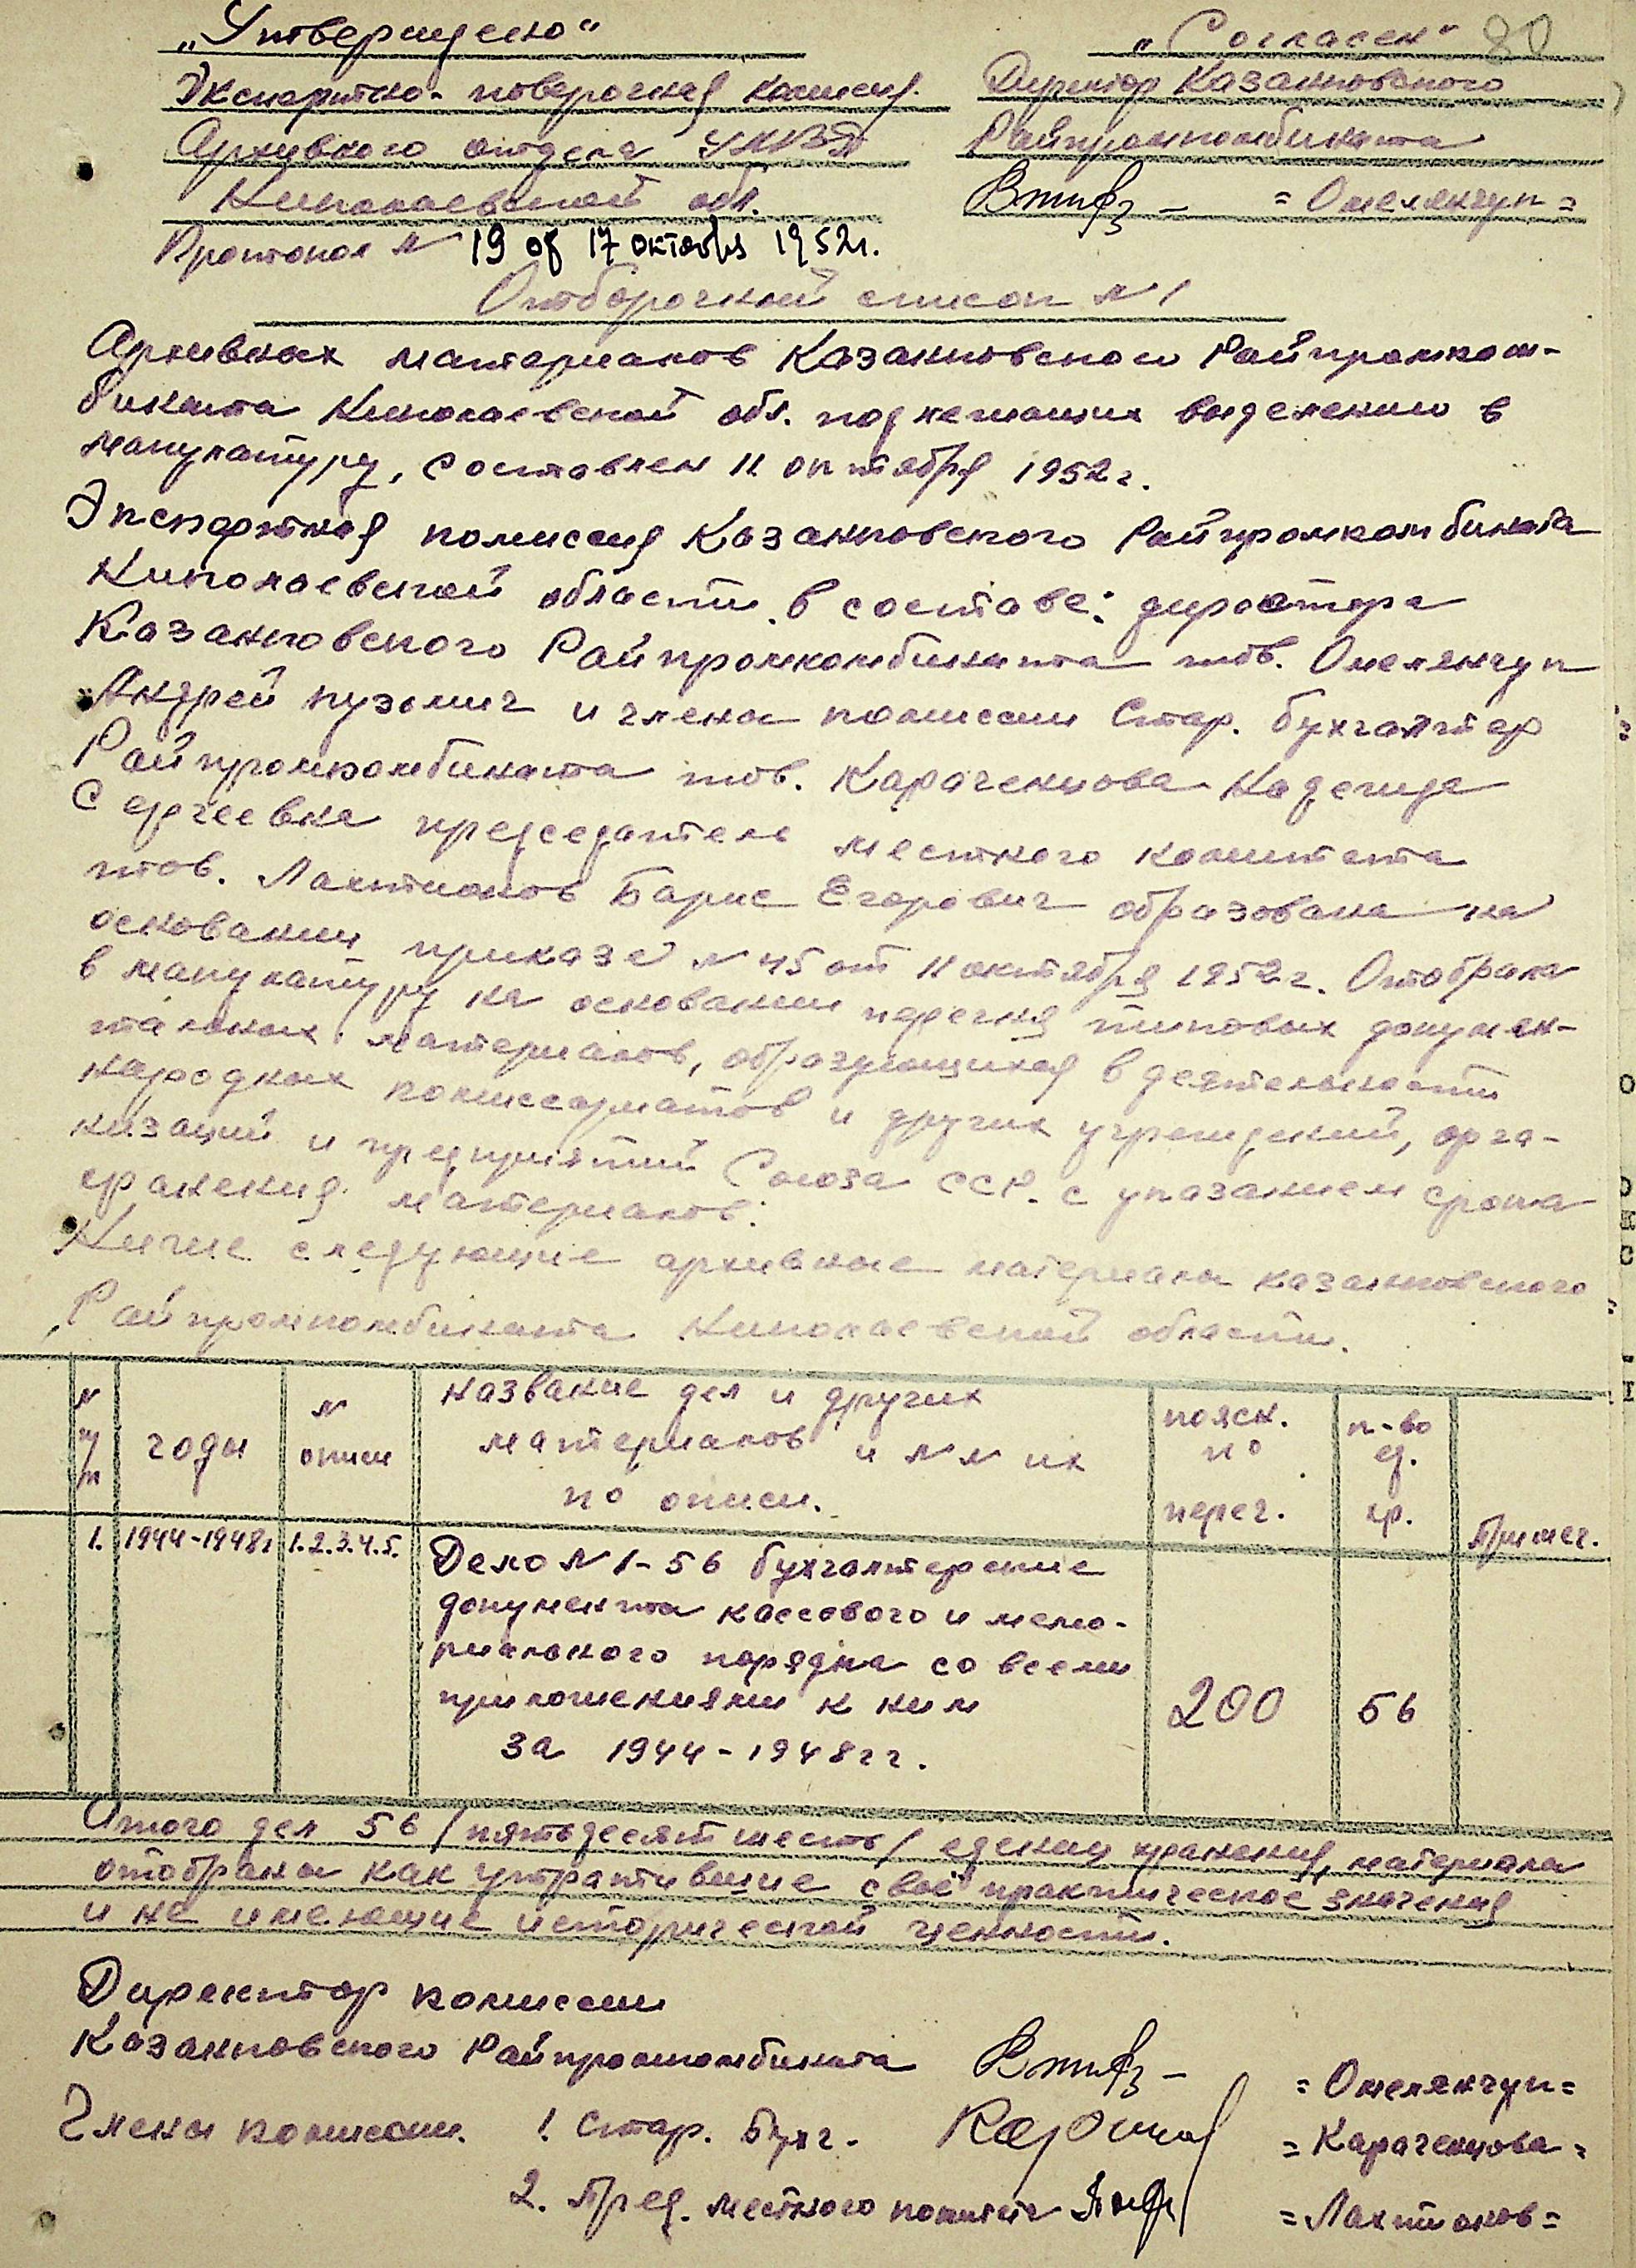 „Утверждено“
„Согласен“ 80
Экспертно-поверочная комиссия
Директор Казанковского
Архивного отдела УМВД
Райпромкомбината
Николаевской обл.
= Омелянчук =
Протокол № 19 от 17 октября 1952 г.
Отборочный список № 1
Архивных материалов Казанковского Райпромком-
бината Николаевской обл. подлежащих выделению в
макулатуру, составлен 11 октября 1952 г.
Экспертная комиссия Казанковского Райпромкомбината
Николаевской области в составе: директора
Казанковского Райпромкомбината тов. Омелянчук
Андрей Кузьмич и члены комиссии Стар. бухгалтер
Райпромкомбината тов. Караченцова Надежда
Сергеевна председатель местного комитета
тов. Лактионов Барис Егорович образована на
основании приказа № 45 от 11 октября 1952 г. Отобрала
в макулатуру на основании перечня типовых докумен-
тальных материалов, образующихся в деятельности
народных комиссариатов и других учреждений, орга-
низаций и предприятий Союза ССР. с указанием срока
хранения материалов.
Ниже следующие архивные материалы Казанковского
Райпромкомбината Николаевской области.
№ п/п годы № описи название дел и других материалов и №№ их по описи. поясн. по переч. к-во ед. хр. Примеч.
1. 1944-1948г 1.2.3.4.5. Дело № 1-56 бухгалтерские
документы кассового и мемо-
риального порядка со всеми
приложениями к ним 200 56
за 1944-1948гг.
Итого дел 56 /пятьдесят шесть/ единиц хранения, материалы
отобраны как утратившие своё практическое значения
и не имеющие исторической ценности.
Директор комиссии
Казанковского Райпромкомбината = Омелянчук =
Члены комиссии. 1. Стар. Бухг. = Караченцова =
2. Пред. местного комитета = Лактионов =